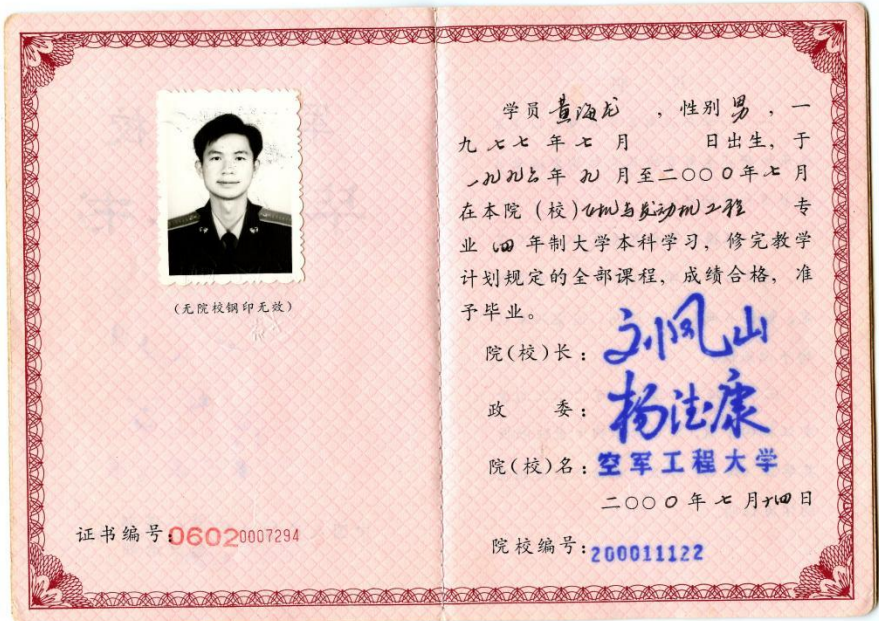 （无院校钢印无效）
证书编号：06020007294
学员 黄海龙 ，性别 男 ，一
九七七年七月 日出生，于
一九九六年九月至二〇〇〇年七月
在本院（校）飞机与发动机工程 专
业 四 年制大学本科学习，修完教学
计划规定的全部课程，成绩合格，准
予毕业。
院(校)长：刘凤山
政 委：杨德康
院(校)名：空军工程大学
二〇〇〇年七月十四日
院校编号：200011122